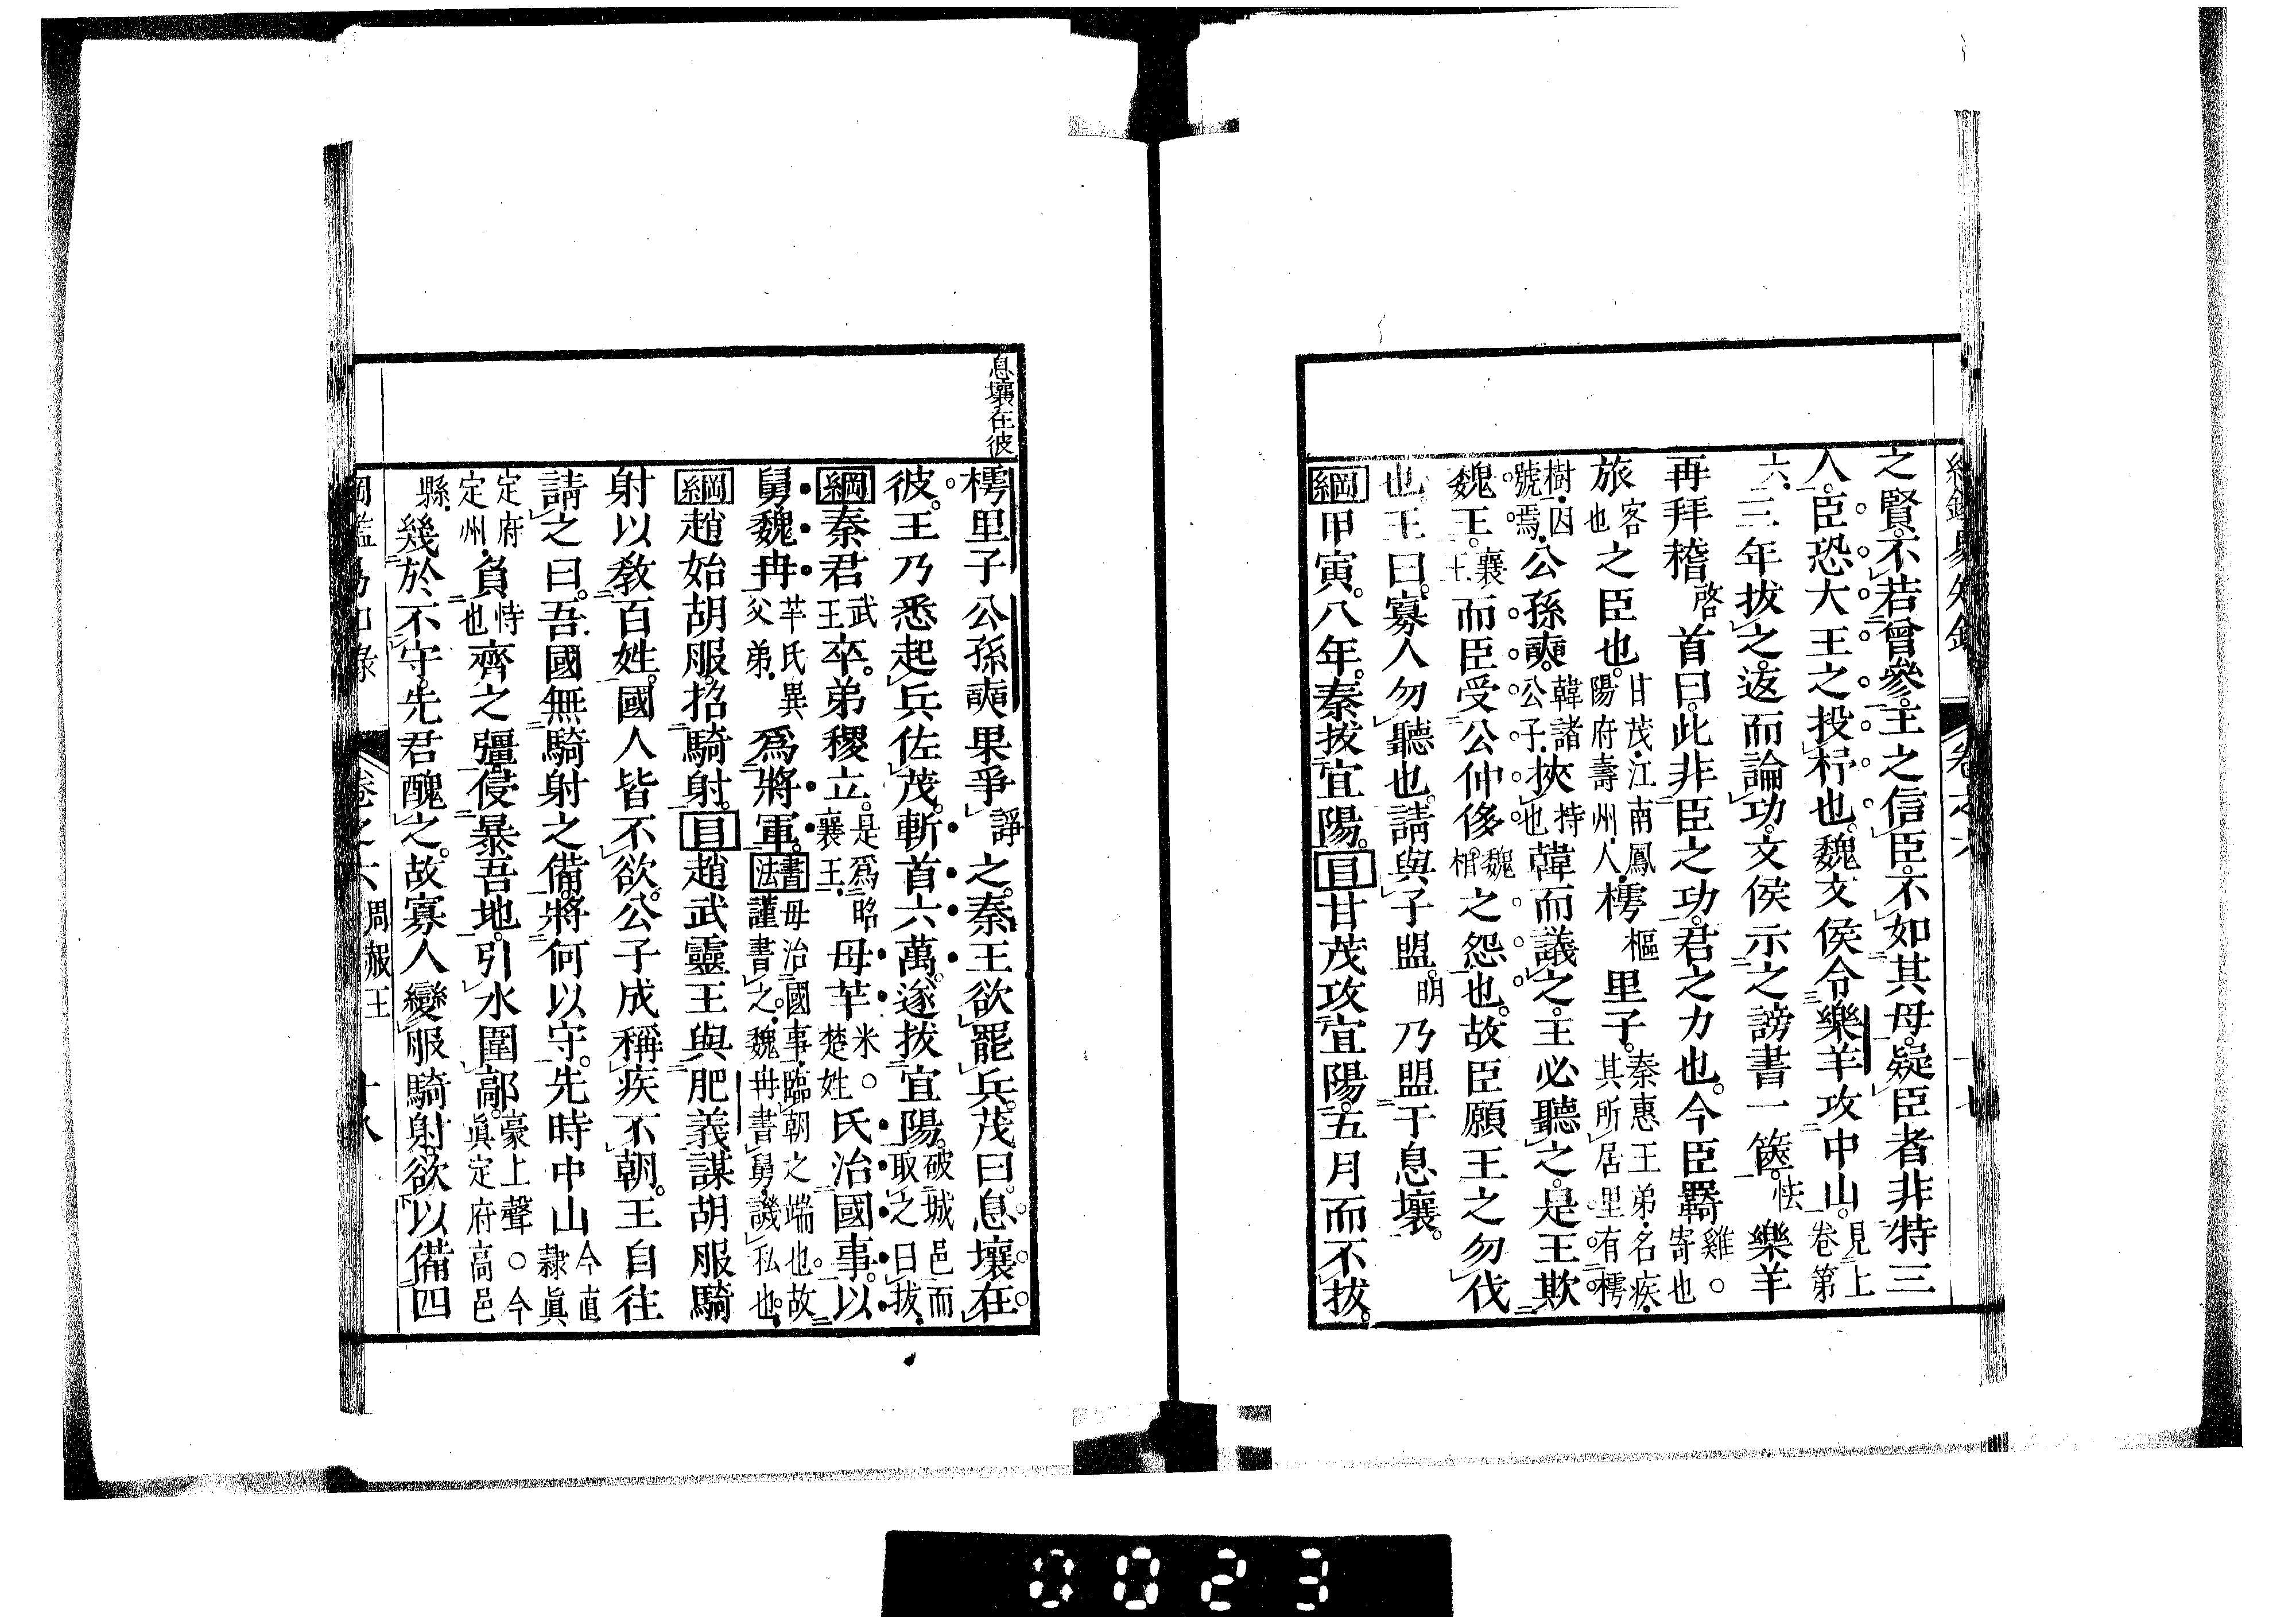 之賢。不若曾參。主之信臣。不如其母。疑臣者非特三
人。臣恐大王之投杼也。魏文侯令樂羊攻中山。見上卷第
六。三年拔之。返而論功。文侯示之謗書一篋。怯樂羊
再拜稽啓首曰。此非臣之功。君之力也。今臣羇雞○寄也
旅客也之臣也。甘茂。江南鳳陽府壽州人。樗樞里子。秦惠王弟。名疾。其所居里有樗
樹。因號焉。公孫奭。韓諸公子。挾持也韓而議之。王必聽之。是王欺
魏王。襄王而臣受公仲侈。魏相之怨也。故臣願王之勿伐
也。王曰。寡人勿聽也。請與子盟。明乃盟于息壤。
綱甲寅。八年。秦拔宜陽。目甘茂攻宜陽。五月而不拔。
卷之六
息壤在彼
樗里子公孫奭果爭諍之。秦王欲罷兵。茂曰。息壤在
彼。王乃悉起兵佐茂。斬首六萬。遂拔宜陽。破城邑而取之曰拔。
綱秦君武王卒。弟稷立。是爲昭襄王。母芈米○楚姓氏治國事。以
舅魏冉芈氏異父弟。爲將軍。書法母治國事。臨朝之端也。故謹書之。魏冉書舅。譏私也。
綱趙始胡服。招騎射。目趙武靈王與肥義謀胡服騎
射以教百姓。國人皆不欲。公子成稱疾不朝。王自往
請之曰。吾國無騎射之備。將何以守。先時中山今直隸眞
定府定州。負恃也齊之彊。侵暴吾地。引水圍鄗。豪上聲○今眞定府高邑
縣。幾於不守。先君醜之。故寡人變服騎射。欲以備四
卷之六 周赧王 十八
0023